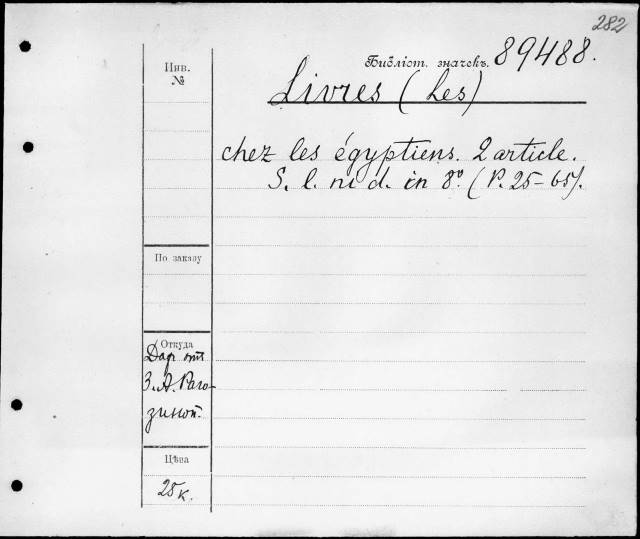 282
Библіот. значекъ. 89488.
Инв.
№
Livres (Les)
chez les égyptiens. 2 article.
S. l. ni d. in 8º. (P. 25-65).
По заказу
Откуда
Дар от
З. А. Раго-
зиной.
Цѣна
25 к.